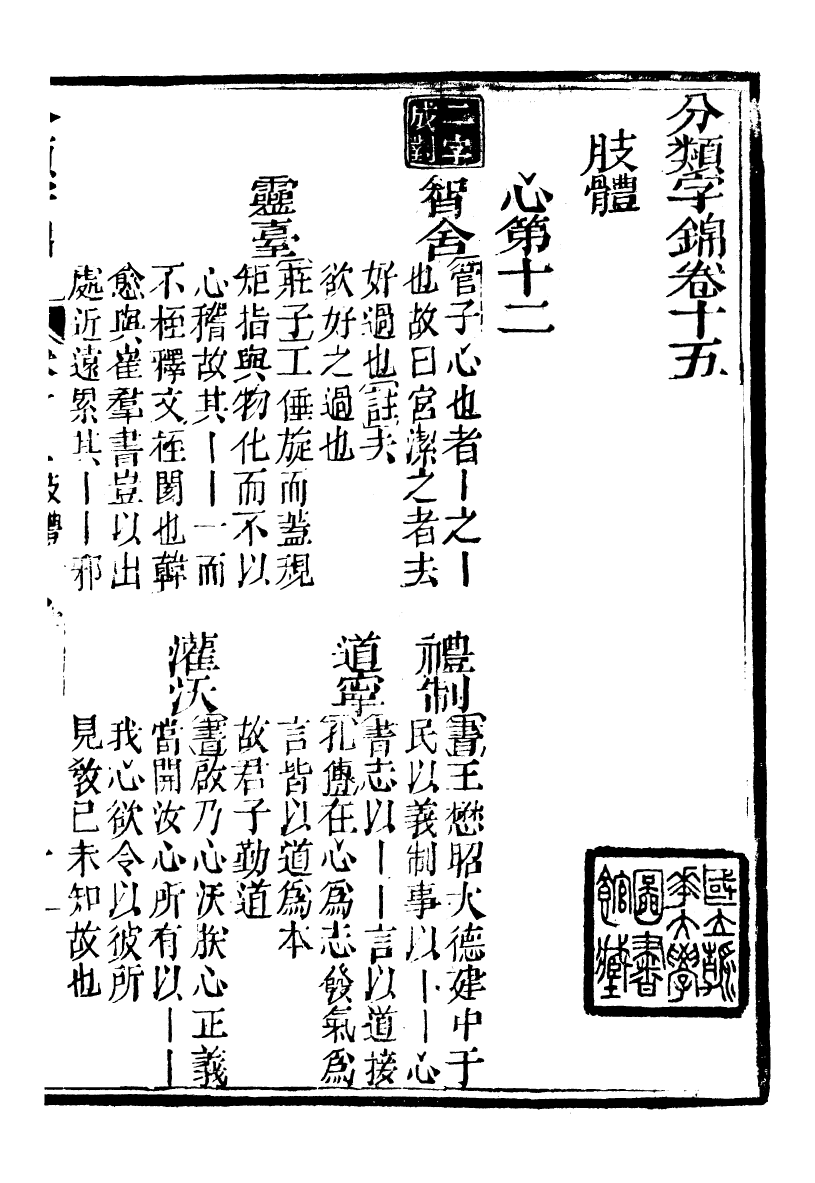 分類字錦卷十五
肢體
心第十二
二字
成對
智舍
管子心也者丨之丨
也故曰宮潔之者去
好過也註夫
欲好之過也
靈臺
莊子工倕旋而蓋規
矩指與物化而不以
心稽故其丨丨一而
不桎釋文桎閡也韓
愈與崔羣書豈以出
處近遠累其丨丨邪
禮制
書王懋昭大德建中于
民以義制事以丨丨心
道寧
書志以丨丨言以道接
孔傳在心爲志發氣爲
言皆以道爲本
故君子勤道
灌沃
書啟乃心沃朕心正義
當開汝心所有以丨丨
我心欲令以彼所
見敎已未知故也
國立
華大學
圖書
館藏
肢體